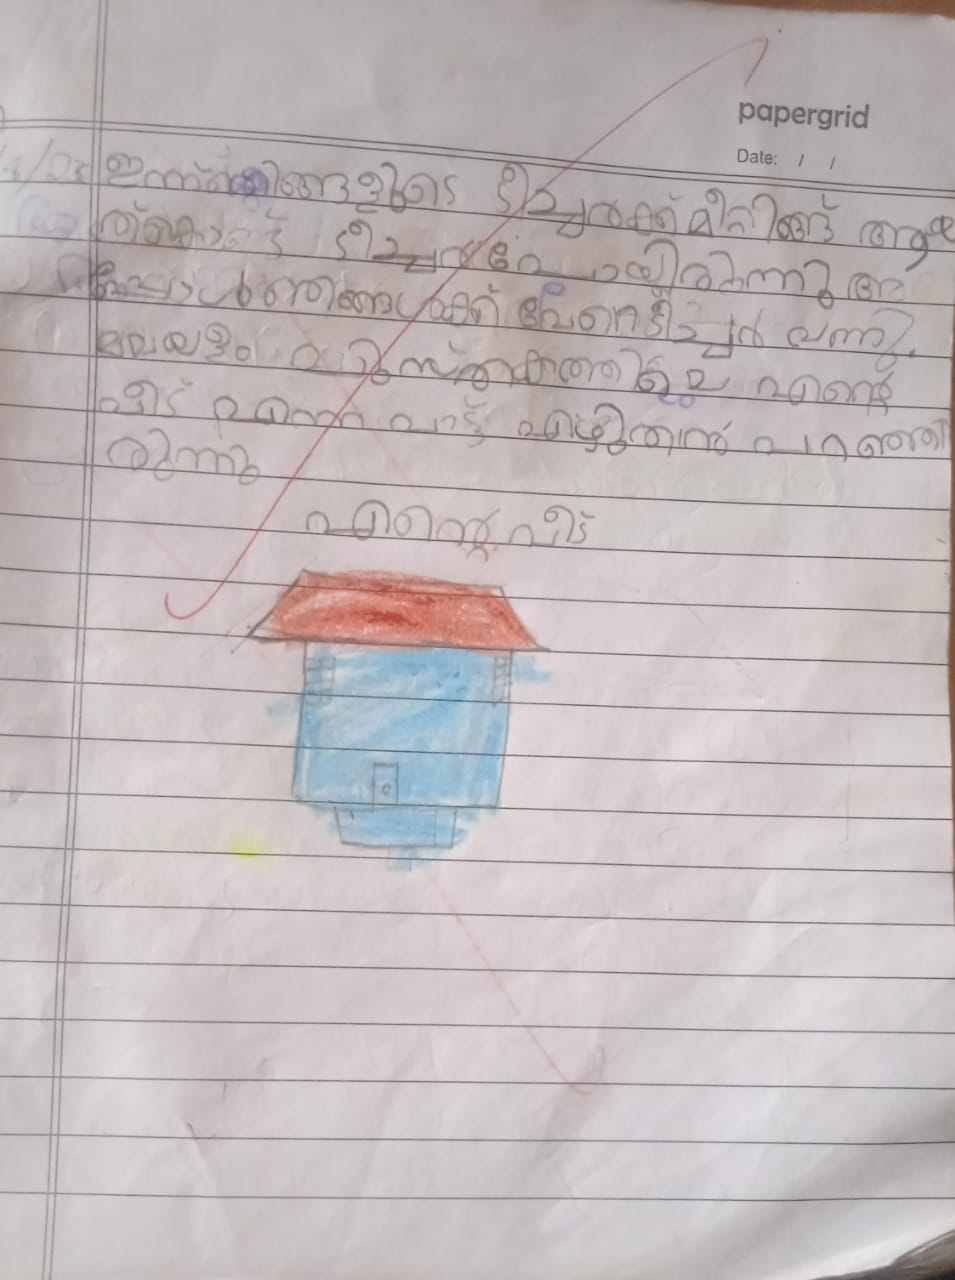 papergrid
Date: / /
ഇന്ന് ഞങ്ങളുടെ ടീച്ചർക്ക് മീറ്റിങ്ങ് ആയ
ത്കൊണ്ട് ടീച്ചർ പോയിരുന്നു അ
പ്പോൾ ഞങ്ങൾക്ക് വേറെ ടീച്ചർ വന്നു.
മലയളം പുസ്തകത്തിലെ എന്റെ
വീട് എന്ന പാട്ട് എഴുതാൻ പറഞ്ഞി
രുന്നു
എന്റെ വീട്